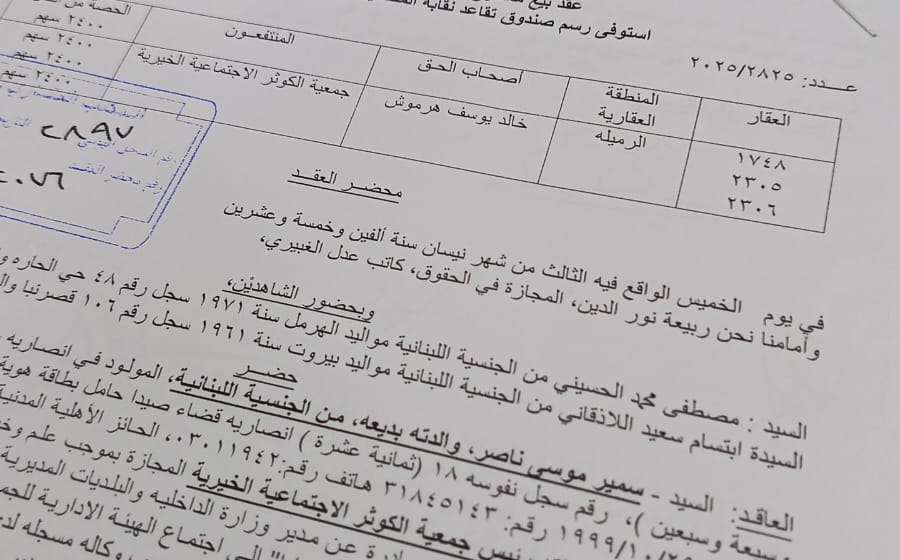 عقد بيع
استوفى رسم صندوق تقاعد نقابة
عـــدد: ٢٠٢٥/٢٨٢٥
العقار
المنطقة العقارية
أصحاب الحق
المنتفعون
الحصة من
١٧٤٨
الرميله
خالد يوسف هرموش
جمعية الكوثر الاجتماعية الخيرية
٢٤٠٠ سهم
٢٣٠٥
٢٤٠٠ سهم
٢٣٠٦
٢٤٠٠ سهم
٢٤٠٠ سهم
٢٨٩٧
٢٠٧٦
محضر العقد
في يوم الخميس الواقع فيه الثالث من شهر نيسان سنة ألفين وخمسة وعشرين
وأمامنا نحن ربيعة نور الدين، المجازة في الحقوق، كاتب عدل الغبيري،
وبحضور الشاهدين،
السيد : مصطفى محمد الحسيني من الجنسية اللبنانية مواليد الهرمل سنة ١٩٧١ سجل رقم ٤٨ حي الحاره
السيدة ابتسام سعيد اللاذقاني من الجنسية اللبنانية مواليد بيروت سنة ١٩٦١ سجل رقم ١٠٦ قصرنبا
حضر
العاقد: السيد - سمير موسى ناصر، والدته بديعه، من الجنسية اللبنانية، المولود في انصاريه
وسبعة وسبعين )، رقم سجل نفوسه ١٨ (ثمانية عشرة ) انصاريه قضاء صيدا حامل بطاقة هوية
١٩٩٩/١٠/ رقم: ٣١٨٤٥١٤٣ هاتف رقم:٠٣٠١١٩٤٢، الحائز الأهلية المدنية
جمعية الكوثر الاجتماعية الخيرية المجازة بموجب علم
عن مدير وزارة الداخليه والبلديات المديرية
الى اجتماع الهيئة الادارية
وكاله مسجله